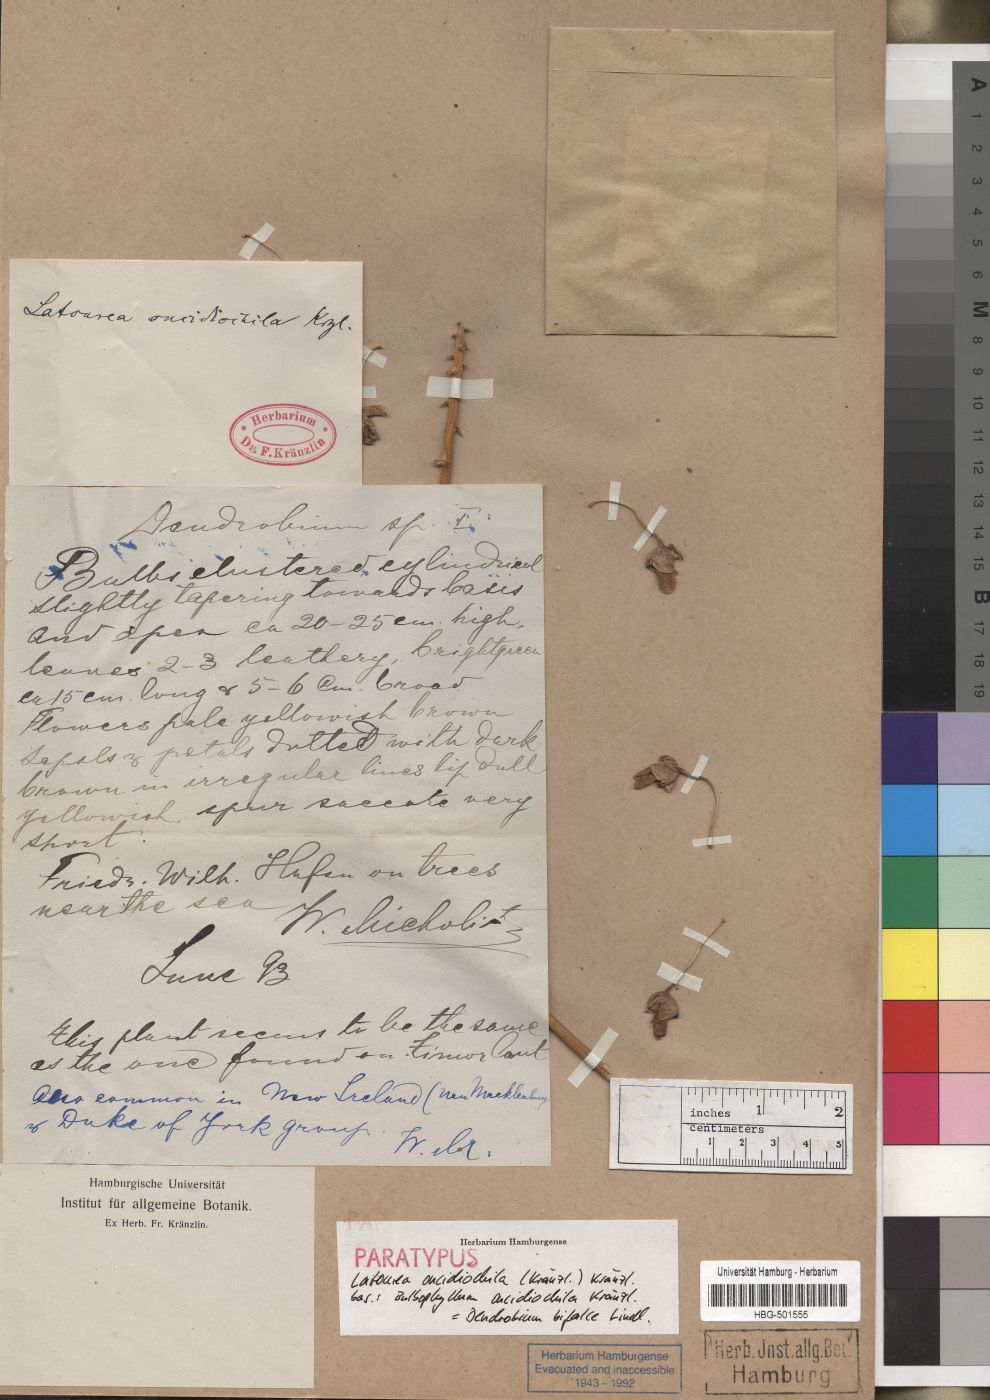 Latourea oncidiochila Krzl.
Herbarium
Dr. F. Kränzlin
Dendrobium sp. I
Bulbs clustered, cylindrical
slightly tapering towards basis
and apex ca 20-25 cm. high,
leaves 2-3 leathery, brightgreen
ca 15 cm. long & 5-6 Cm. broad
Flowers pale yellowish brown
sepals & petals dotted with dark
brown in irregular lines lip dull
yellowish. spur saccate very
short.
Friedr. Wilh. Hafen on trees
near the sea
W. Micholitz
June 93
this plant seems to be the same
as the one found on Timor laut
also common in New Ireland (Neu Mecklenburg
& Duke of York group.
W. M.
Hamburgische Universität
Institut für allgemeine Botanik.
Ex Herb. Fr. Kränzlin.
Herbarium Hamburgense
PARATYPUS
Latourea oncidiochila (Kränzl.) Kränzl.
bas.: Bulbophyllum oncidiochila Kränzl.
= Dendrobium bifalce Lindl.
Herbarium Hamburgense
Evacuated and inaccessible
1943 - 1992
Universität Hamburg - Herbarium
HBG-501555
Herb. Inst. allg. Bot.
Hamburg
inches 1 2
centimeters 1 2 3 4 5
A
1
2
3
4
5
6
M
8
9
10
11
12
13
14
15
B
17
18
19